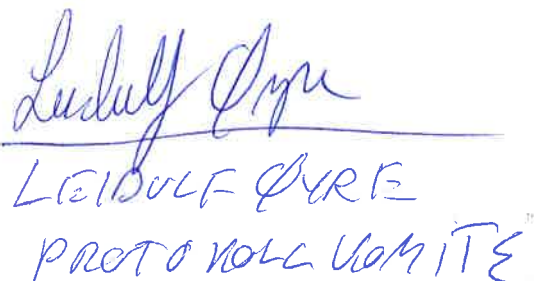 Leidulf Øyre
LEIDULF ØYRE
PROTOKOLL KOMITE